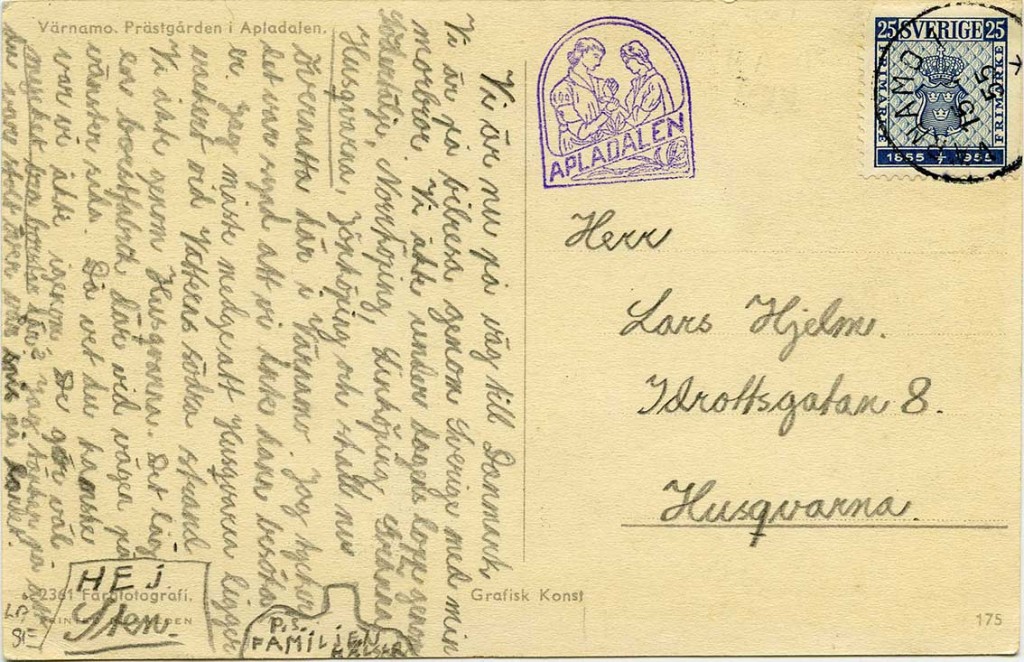 Värnamo. Prästgården i Apladalen.
Vi är nu på väg till Danmark
Vi är på bilresa genom Sverige med min
morbror. Vi åkte under dagens lopp genom
Södertälje, Norrköping, Linköping, Gränna,
Husqvarna, Jönköping och skall nu
övernatta här i Värnamo. Jag tycker
det var synd att vi inte hann besöka
er. Jag måste medge att Husqvarna ligger
vackert vid Vätterns södra strand
Vi åkte genom Husqvarna. Det låg
en bordfabrik där vid vägen på
vänster sida. Då vet du kanske
var vi åkte igenom. De gör väl
mycket bra
HEJ.
Sten.
P.S.
FAMILJEN
HÄLSAR
2361 Färgfotografi.
Grafisk Konst
175
APLADALEN
25 SVERIGE 25
FRIMÄRKE
1855 1955
VÄRNAMO
55
Herr
Lars Hjelm.
Idrottsgatan 8.
Husqvarna.